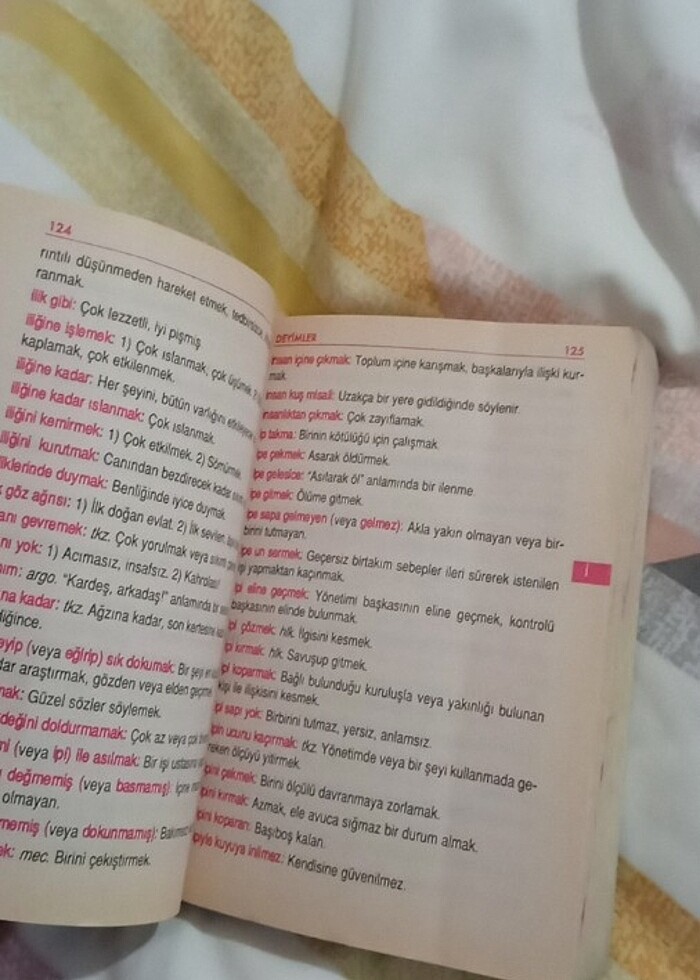 124
rıntılı düşünmeden hareket etmek, tedbirsizce
ranmak.
ilik gibi: Çok lezzetli, iyi pişmiş
iliğine işlemek: 1) Çok ıslanmak, çok üşümek. 2)
kaplamak, çok etkilenmek.
iliğine kadar: Her şeyini, bütün varlığını
iliğine kadar ıslanmak: Çok ıslanmak.
iliğini kemirmek: 1) Çok etkilmek. 2) Sömürmek.
iliğini kurutmak: Canından bezdirecek kadar
iliklerinde duymak: Benliğinde iyice duymak.
göz ağrısı: 1) İlk doğan evlat. 2) İlk sevilen
anı gevremek: tkz. Çok yorulmak veya
nı yok: 1) Acımasız, insafsız. 2)
ım: argo. "Kardeş, arkadaş!" anlamında bir
na kadar: tkz. Ağzına kadar, son
diğince.
eyip (veya eğirip) sık dokumak: Bir şeyi
dar araştırmak, gözden veya elden geçirmek
mak: Güzel sözler söylemek.
değini doldurmamak: Çok az veya çok
ni (veya ipi) ile asılmak: Bir işi ustasına
değmemiş (veya basmamış): İçine
olmayan.
memiş (veya dokunmamış):
ek: mec. Birini çekiştirmek.
DEYİMLER
125
insan içine çıkmak: Toplum içine karışmak, başkalarıyla ilişki kur-
mak.
insan kuş misali: Uzakça bir yere gidildiğinde söylenir.
insanlıktan çıkmak: Çok zayıflamak.
ip takma: Birinin kötülüğü için çalışmak.
ipe çekmek: Asarak öldürmek.
ipe gelesice: "Asılarak öl" anlamında bir ilenme.
ipe gitmek: Ölüme gitmek.
ipe sapa gelmeyen (veya gelmez): Akla yakın olmayan veya bir-
birini tutmayan.
ipe un sermek: Geçersiz birtakım sebepler ileri sürerek istenilen
işi yapmaktan kaçınmak.
İ
ipi eline geçmek: Yönetimi başkasının eline geçmek, kontrolü
başkasının elinde bulunmak.
ipi çözmek: hlk. İlgisini kesmek.
ipi kırmak: hlk. Savuşup gitmek.
ipi koparmak: Bağlı bulunduğu kuruluşla veya yakınlığı bulunan
kişi ile ilişkisini kesmek.
ipi sapı yok: Birbirini tutmaz, yersiz, anlamsız.
ipin ucunu kaçırmak: tkz. Yönetimde veya bir şeyi kullanmada ge-
reken ölçüyü yitirmek.
ipini çekmek: Birini ölçülü davranmaya zorlamak.
ipini kırmak: Azmak, ele avuca sığmaz bir durum almak.
ipini koparan: Başıboş kalan.
ipiyle kuyuya inilmez: Kendisine güvenilmez.